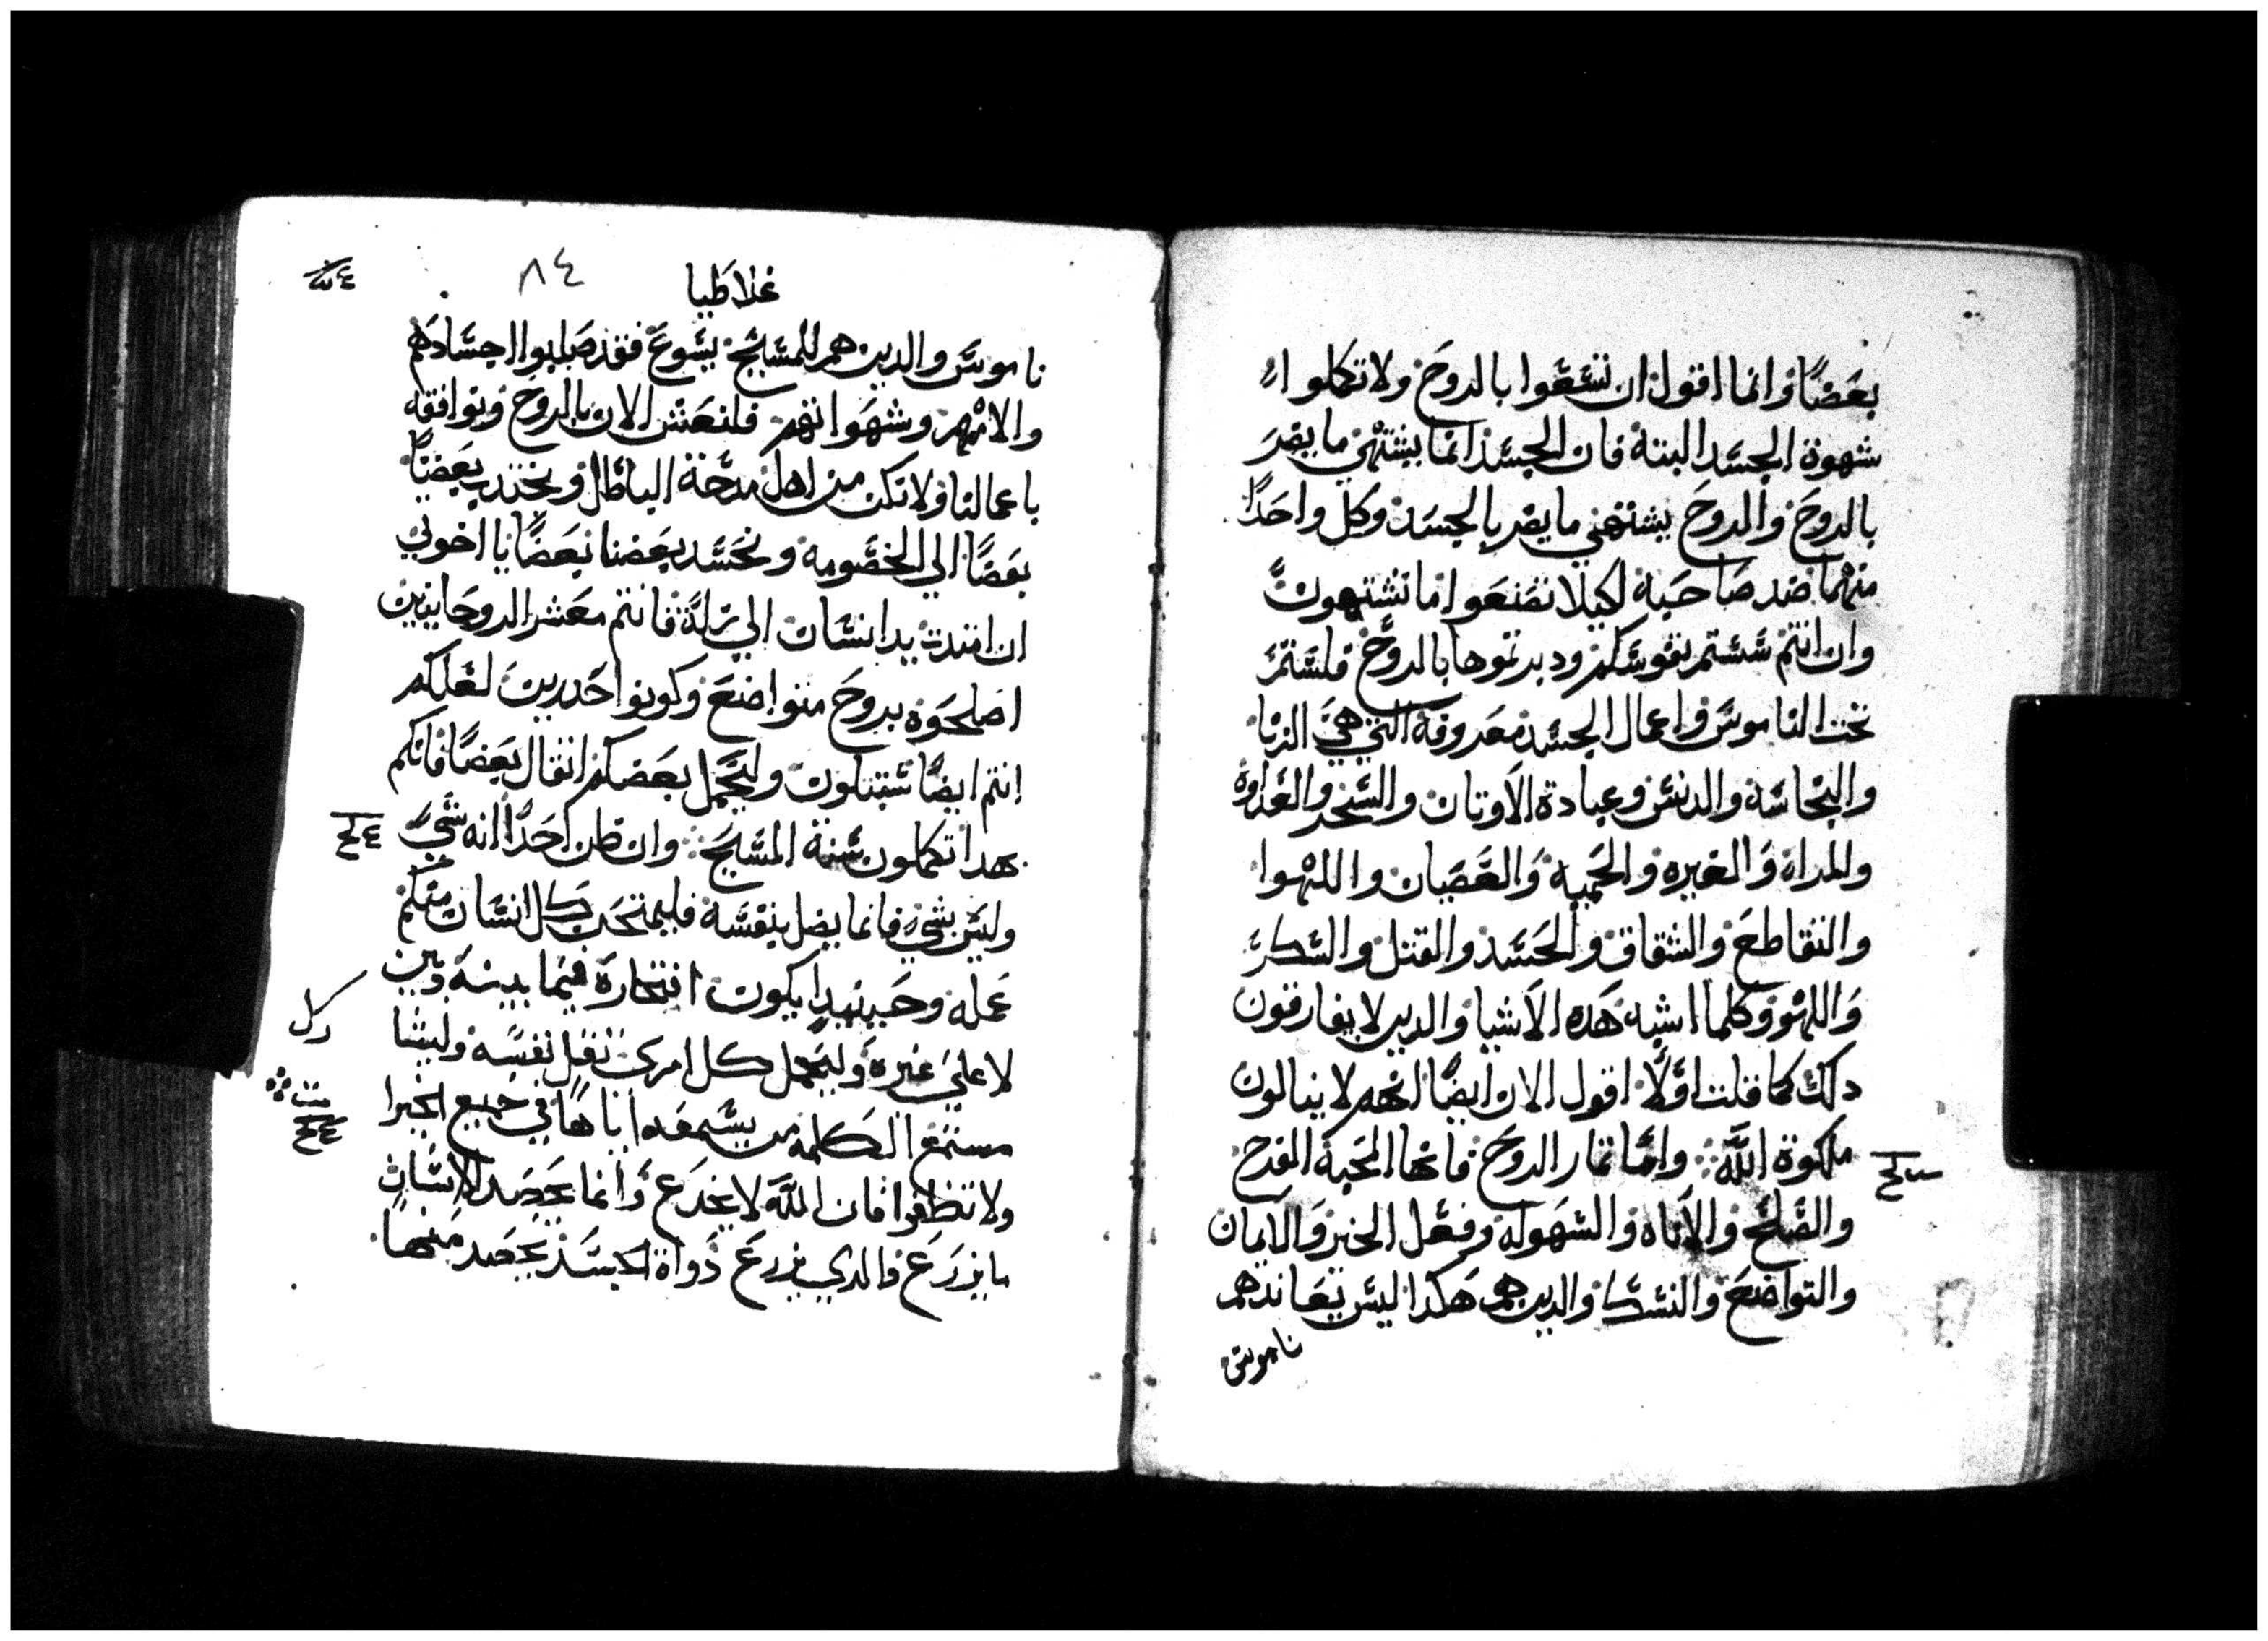 بعضًا وانما اقول ان تسعوا بالروح ولا تكملوا
شهوة الجسد البتة فان الجسد انما يشتهي ما يضر
بالروح والروح يشتهي ما يضر بالجسد وكل واحدًا
منهما ضد صاحبه لكيلا تصنعوا ما تشتهون
وان انتم سستم نفوسكم ودبرتموها بالروح فلستم
تحت الناموس واعمال الجسد معروفة التي هي الزنا
والنجاسة والدنس وعبادة الاوتان والسحر والعداوة
والمراة والغيرة والحمية والعصيان واللهوا
والتقاطع والشقاق والحسد والقتل والسكر
واللهو وكلما اشبه هده الاشيا والدين لا يفارقون
دلك كما قلت اولًا اقول الان ايضًا انهم لا ينالون
ملكوة الله واما تمار الروح فانها المحبة الفرح
والصلح والاناه والسهولة وفعل الخير والايمان
والتواضع والنسك والدين هم هكدا ليس يعاندهم
ناموس
غلاطيا
٨٤
ناموس والدين هم للمسيح يسوع فقد صلبوا اجسادهم
والامهم وشهواتهم فلنعش الان بالروح ونوافقه
باعمالنا ولا نكن من اهل مدحة الباطل ونجتدب بعضنا
بعضًا الي الخصومه ونحسد بعضنا بعضًا يا اخوتي
ان امتدت يد انسان الي زلة فانتم معشر الروحانيين
اصلحوه بروح متواضع وكونوا حدرين لعلكم
انتم ايضًا تبتلون وليحمل بعضكم اتقال بعضًا فانكم
بهدا تكملون سنة المسيح وان ظن احدًا انه شي
وليس بشي فانما يضل نفسه فليمتحن كل انسان منكم
عمله وحينيدا يكون افتخاره فيما بينه وبين
لا علي غيره وليحمل كل امري تقل نفسه وليشا
مستمع الكلمة من يسمعه اياها في جميع الخيرا
ولا تظلوا فان الله لا يخدع وانما يحصد الانسان
ما يزرع فالدي يزرع دواة الجسد يحصد منها